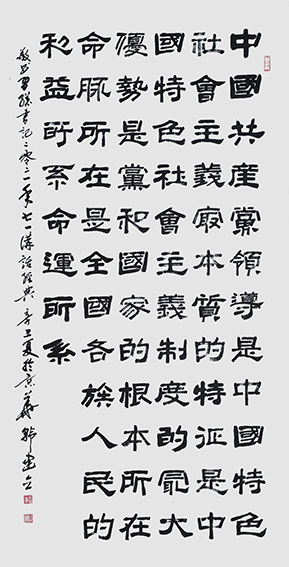 中國共產黨領導是中國特色
社會主義寂本質的特征是中
國特色社會主義制度的寂大
優勢是黨和國家的根本所在
命脉所在是全國各族人民的
利益所系命運所系
敬书 書记二零二一年七一講話經典 辛丑夏於京華 韩